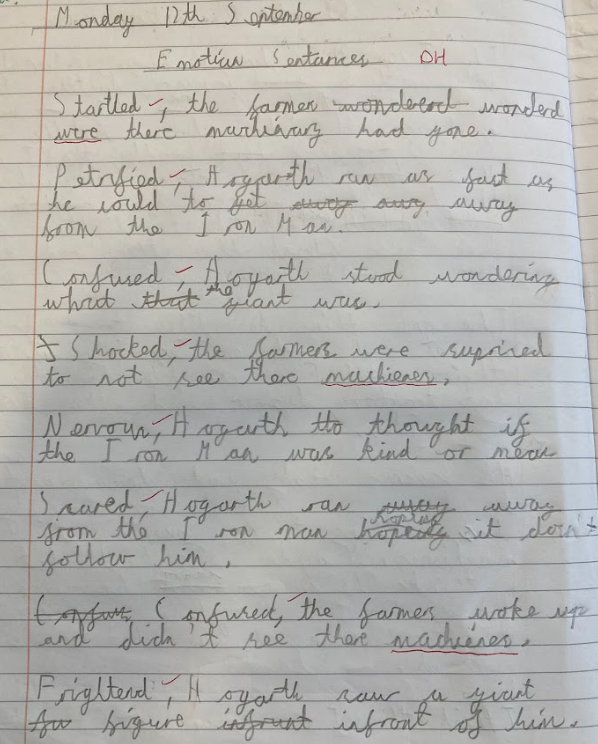 Monday 12th September
Emotion Sentances DH
Startled, the farmer wondered wonderd
were there machinary had gone.
Petrified, Hogarth ran as fast as
he could to get away away away
from the Iron Man.
Confused, Hogarth stood wondering
what that the giant was.
Shocked, the farmers were suprised
to not see there machienes,
Nervous, Hogarth tho thought if
the Iron Man was kind or mean
Scared, Hogarth ran away away
from the Iron man hoping it dosn't
follow him.
Confuse, Confused, the farmers woke up
and didn't see there machienes.
Frightend, Hogarth saw a giant
figure infrunt infront of him.